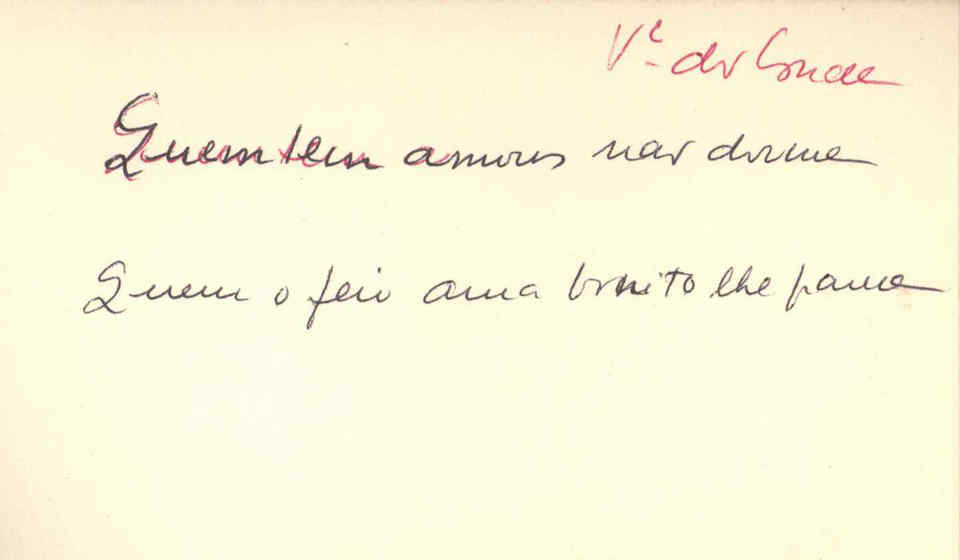 Vª do Conde
Quem tem amores não dorme
Quem o feio ama bonito lhe parece